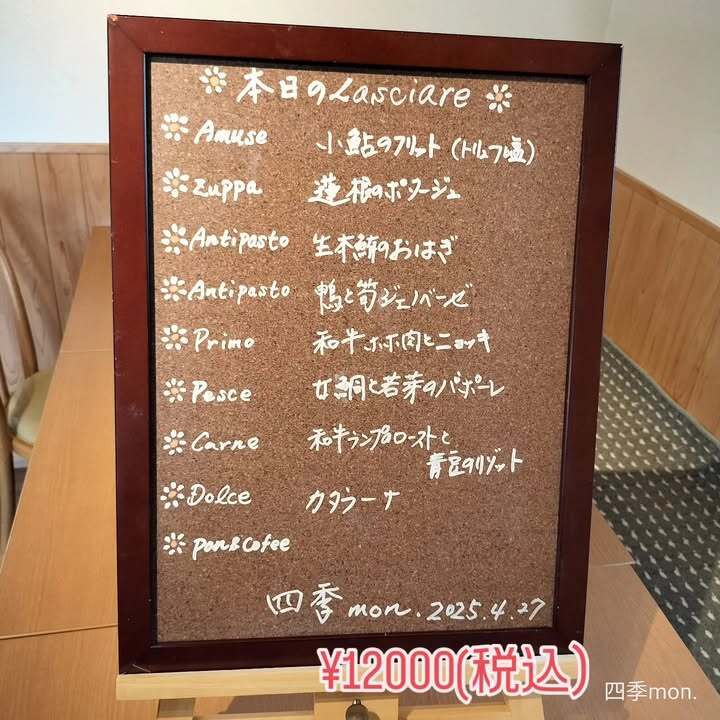 本日のLasciare
Amuse 小鮎のフリット (トリュフ塩)
Zuppa 蓮根のポタージュ
Antipasto 生本鮪のおはぎ
Antipasto 鴨と筍ジェノベーゼ
Primo 和牛ホホ肉とニョッキ
Pesce 女鯛と若芽のバポーレ
Carne 和牛ランプのローストと
青豆のリゾット
Dolce カタラーナ
pan&Cofee
四季mon.2025.4.27
¥12000(税込)
四季mon.